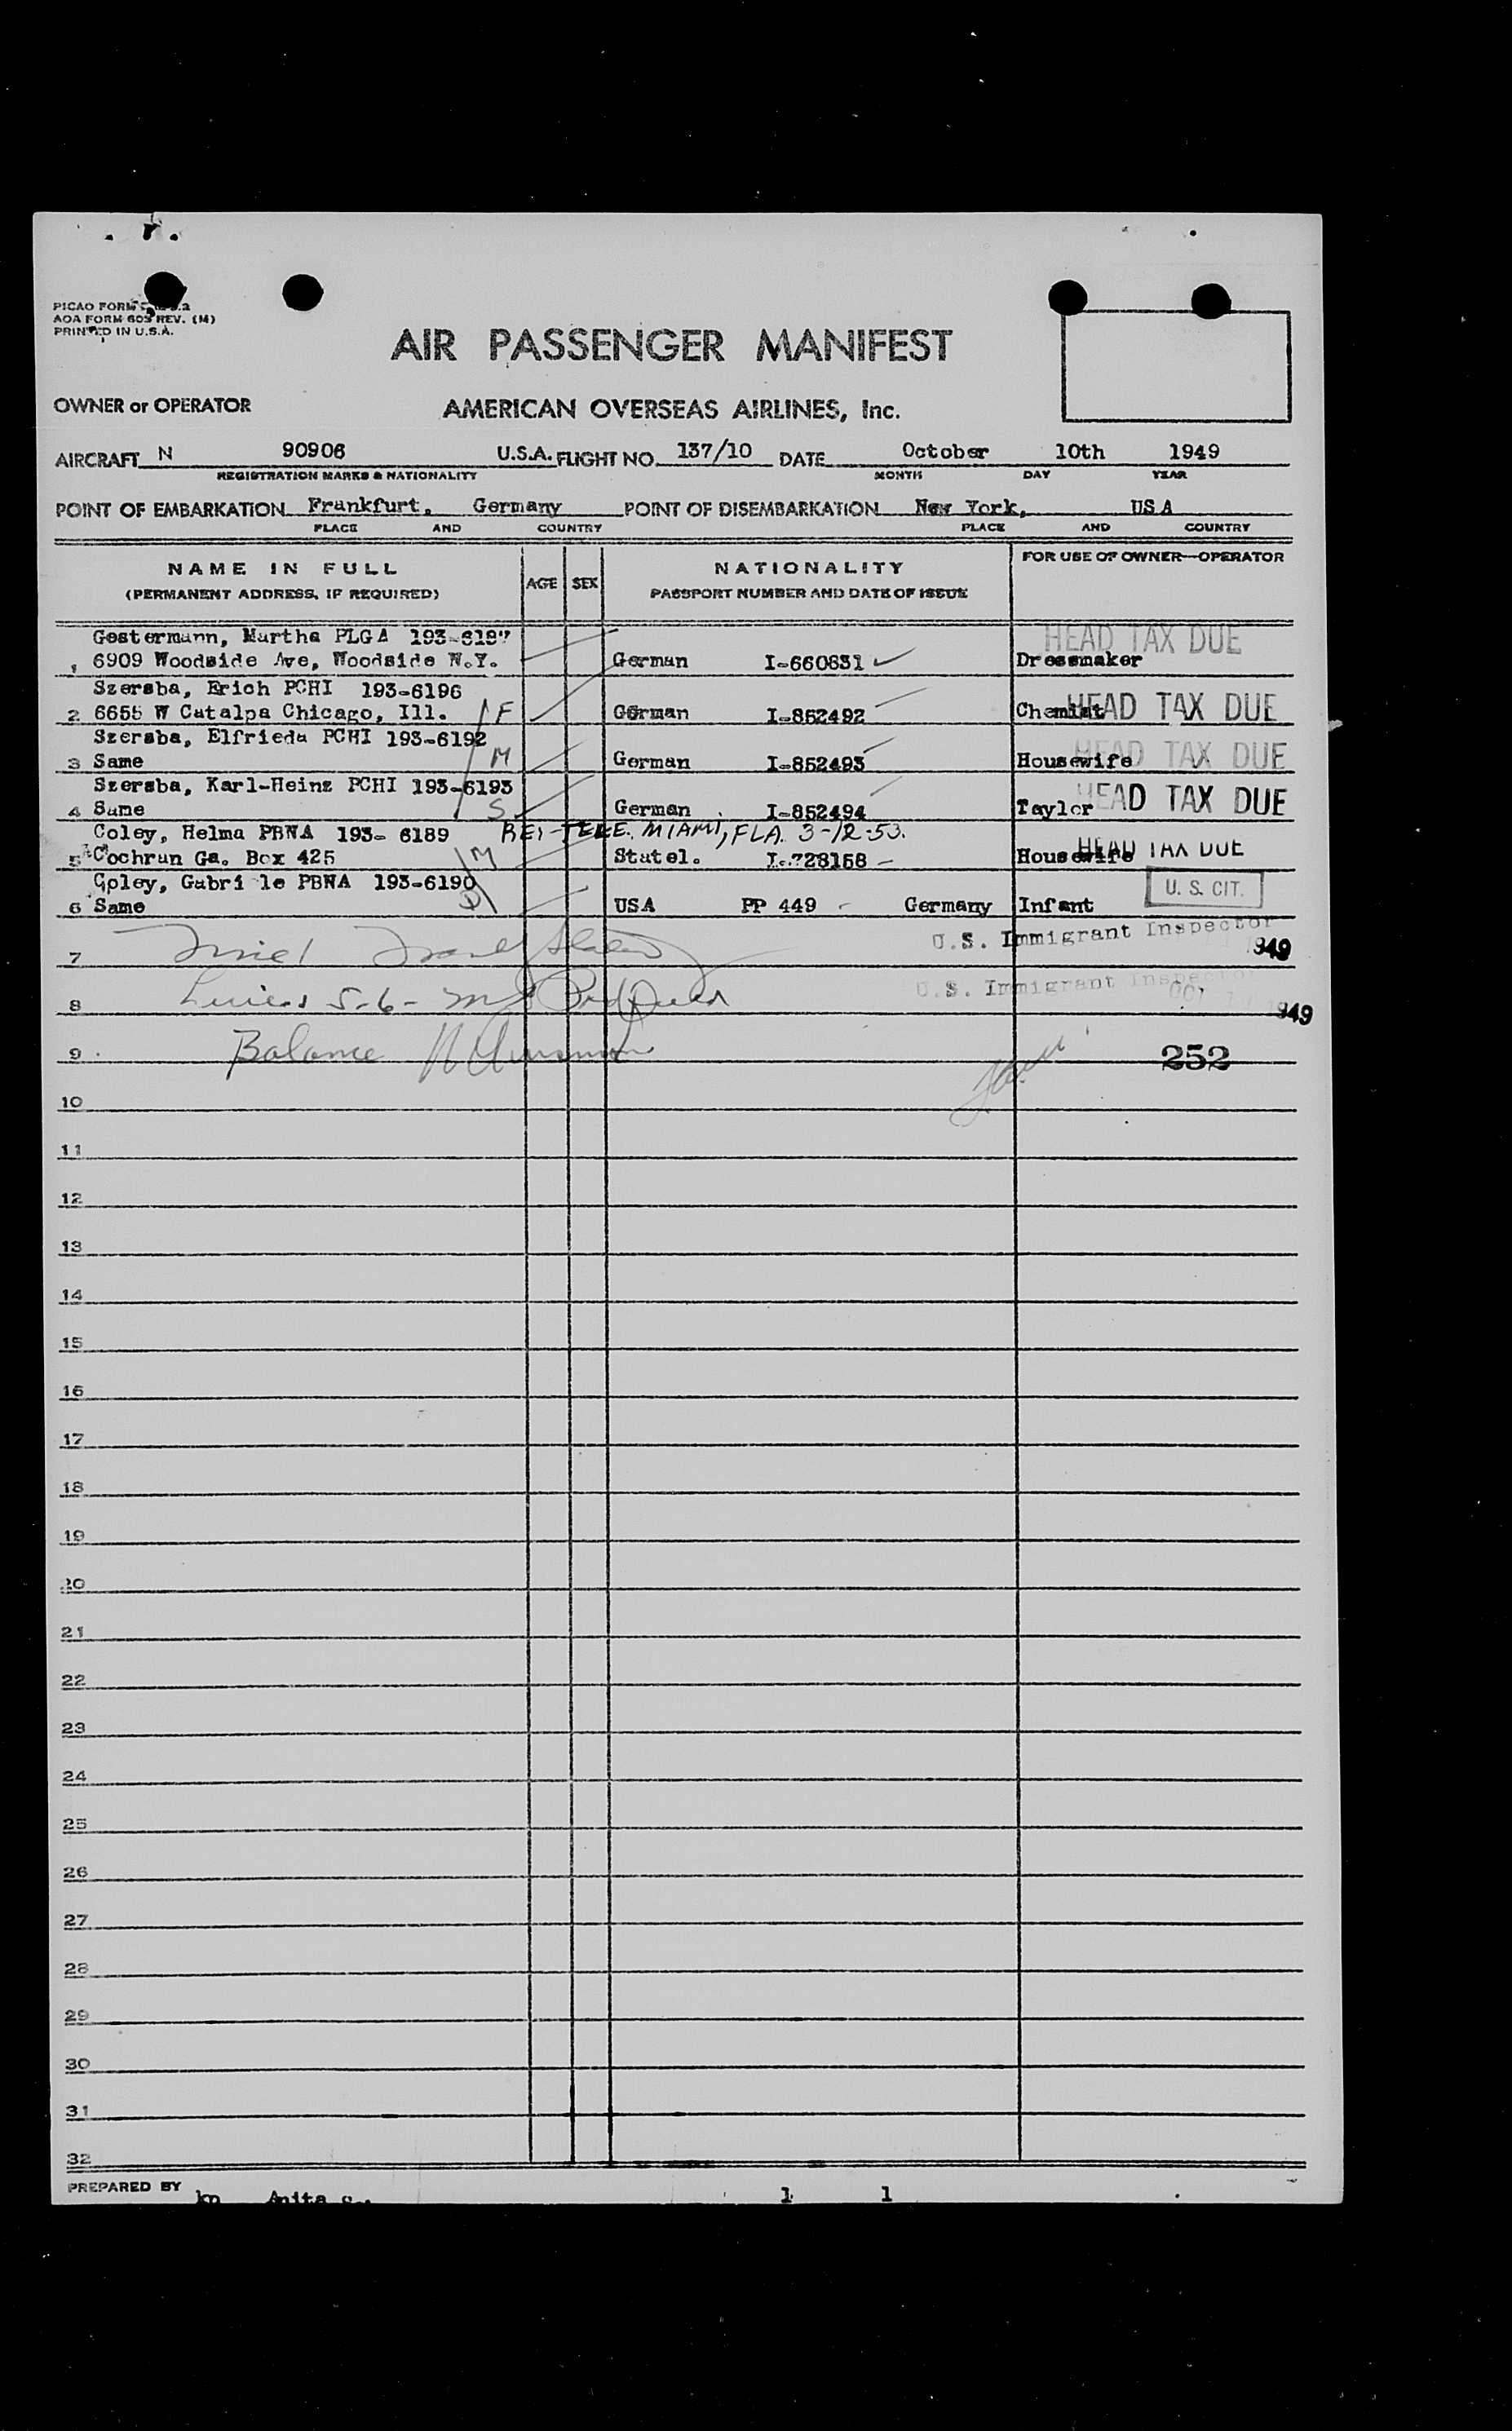 AIR PASSENGER MANIFEST
PRINTED IN U.S.A.
OWNER or OPERATOR AMERICAN OVERSEAS AIRLINES, Inc.
AIRCRAFT N 90906 U.S.A. FLIGHT NO. 137/10 DATE October 10th 1949
REGISTRATION MARKS & NATIONALITY MONTH DAY YEAR
POINT OF EMBARKATION Frankfurt, Germany POINT OF DISEMBARKATION New York, USA
PLACE AND COUNTRY PLACE AND COUNTRY
NAME IN FULL AGE SEX NATIONALITY FOR USE OF OWNER—OPERATOR
(PERMANENT ADDRESS, IF REQUIRED) PASSPORT NUMBER AND DATE OF ISSUE
Gestermann, Martha PLGA HEAD TAX DUE
1 6909 Woodside Ave, Woodside N.Y. German I-660831 Dressmaker
Szersba, Erich PCHI 193-6196 HEAD TAX DUE
2 6655 W Catalpa Chicago, Ill. F German I-852492 Chemist
Szersba, Elfrieda PCHI 193-6192 HEAD TAX DUE
3 Same M German I-852493 Housewife
Szersba, Karl-Heinz PCHI 193-6193 HEAD TAX DUE
4 Same S German I-852494 Taylor
Coley, Helma PBNA 193- 6189 MIAMI, FLA. 3-12-53. HEAD TAX DUE
5 Cochran Ga. Box 425 M Statel. I-728158 Housewife
Coley, Gabri le PBNA 193-6190 U. S. CIT.
6 Same D USA PP 449 Germany Infant
U.S. Immigrant Inspector
7 949
8 U.S. Immigrant Inspector
949
9 Balance 252
10
11
12
13
14
15
16
17
18
19
20
21
22
23
24
25
26
27
28
29
30
31
32
PREPARED BY kn Anita 1 1